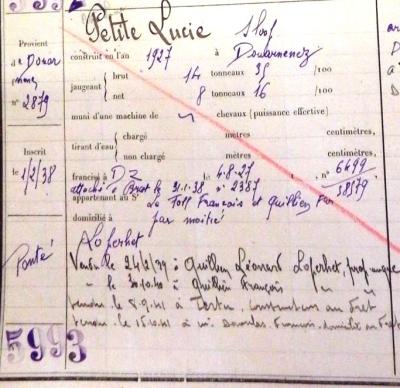 Petite Lucie Sloop
Provient construit en l'an 1927 à Douarnenez
de Douar
nenez jaugeant brut 14 tonneaux 35 /100
n° 2879 net 8 tonneaux 16 /100
muni d'une machine de chevaux (puissance effective)
Inscrit tirant d'eau chargé mètres centimètres,
le 1/2/38 non chargé mètres centimètres,
francisé à DZ le 4.8.27, n° 6499
attaché à Brest le 31.1.38 n° 2387 38579
appartenant au Sr Le Toll François et Quillien Fan
domicilié à par moitié
Loperhet
Ponté Vendu le 24/2/39 à Quillien Léonard Loperhet, prop. unique
" le 30.10.40 à Quillien François " "
vendu le 8.9.41 à Tertu, constructeur au Fret
vendu le 15.10.41 à M. Dourlas François, domicilié au Fret
5993